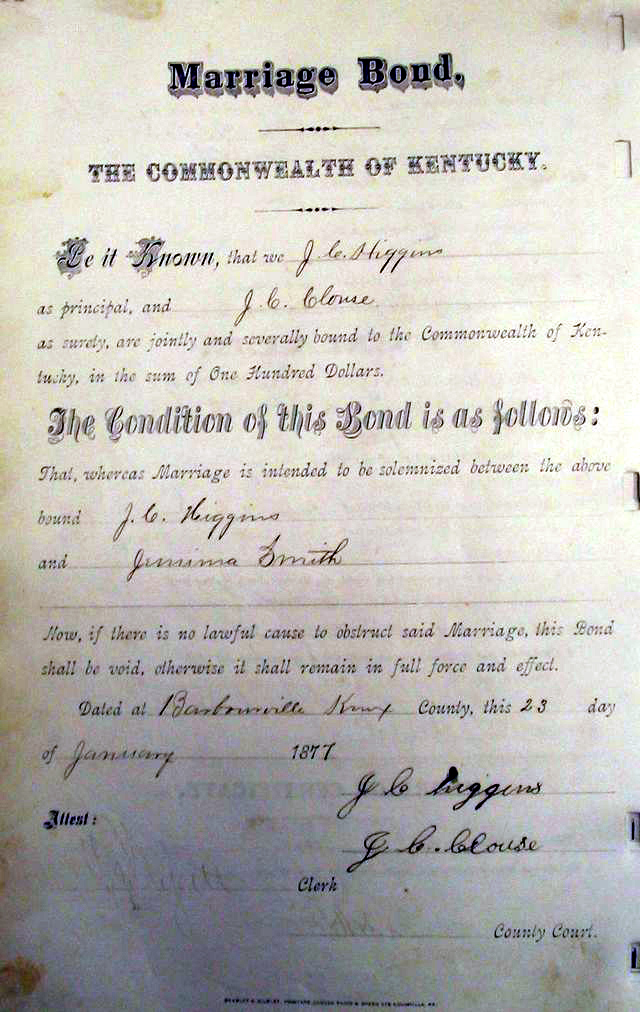 Marriage Bond,
THE COMMONWEALTH OF KENTUCKY.
Be it Known, that we J. C. Higgins
as principal, and J. C. Clouse
as surety, are jointly and severally bound to the Commonwealth of Ken-
tucky, in the sum of One Hundred Dollars.
The Condition of this Bond is as follows:
That, whereas Marriage is intended to be solemnized between the above
bound J. C. Higgins
and Smith
Now, if there is no lawful cause to obstruct said Marriage, this Bond
shall be void, otherwise it shall remain in full force and effect.
Dated at Barbourville Knox County, this 23 day
of January 1877
J C Higgins
Attest:
J. C. Clouse
Clerk
County Court.